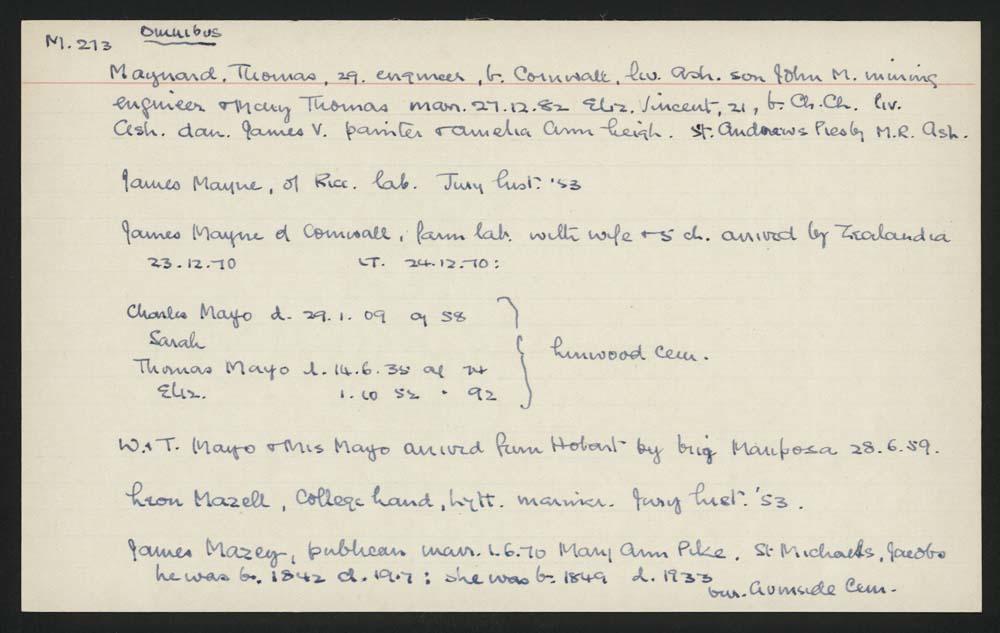 M.213 Omnibus
Maynard, Thomas, 29. engineer, b. Cornwall, liv. Ash. son John M. mining
engineer & Mary Thomas marr. 27.12.82 Eliz. Vincent, 21, b. Ch.Ch. liv.
Ash. dau. James V. painter & Amelia Ann Leigh. St. Andrews Presby M.R. Ash.
James Mayne, of Ricc. lab. Jury List: '53
James Mayne of Cornwall, farm lab. with wife & 5 ch. arrived by Zealandia
23.12.70 LT. 24.12.70:
Charles Mayo d. 29.1.09 ag 58
Sarah
Thomas Mayo d. 14.6.35 ag 74
Eliz. 1.10 52 " 92
Linwood Cem.
W. & T. Mayo & Mrs Mayo arrived from Hobart by brig Mariposa 28.6.59.
Leon Mazell, College Land, Lytt. mariner. Jury List: '53.
James Mazey, publican marr. 1.6.70 Mary Ann Pike, St Michaels, Jacobs
he was b. 1842 d. 1917: she was b. 1849 d. 1933
bur. Avonside Cem.